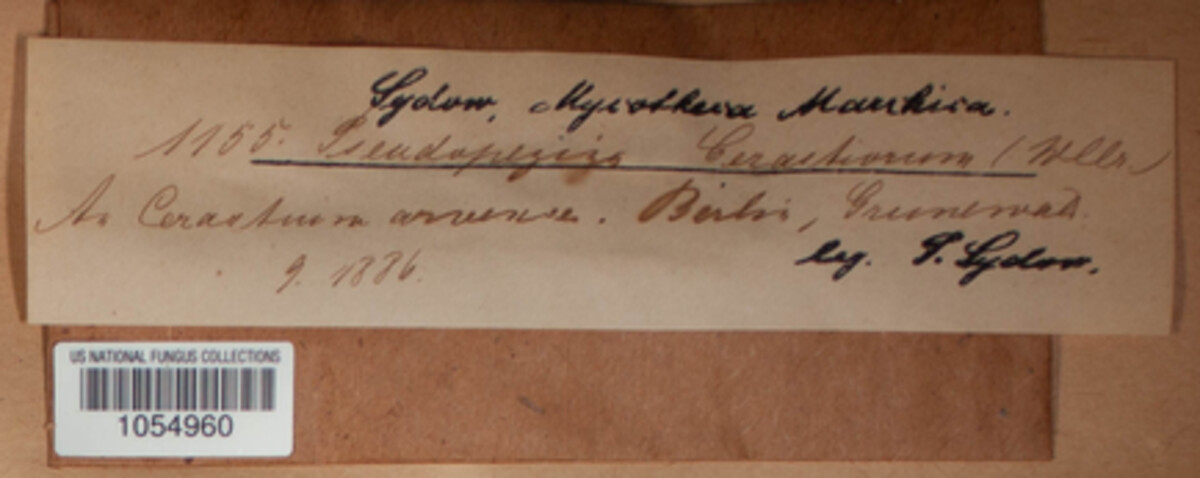 Sydow, Mycotheca Marchica.
1155. Pseudopeziza Cerastiorum (Wllr.)
An Cerastium arvense. Berlin, Grunewald.
leg. P. Sydow.
9. 1886.
US NATIONAL FUNGUS COLLECTIONS
1054960